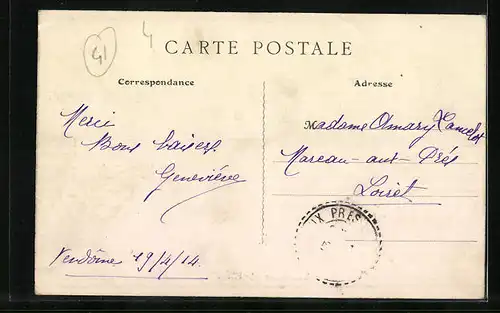 41 4
CARTE POSTALE
Correspondance
Adresse
Merci
Bons baisers
Geneviève
Vendôme 19/4/14
Madame Amary Lancelot
Mareau-aux-Prés
Loiret
UX PRES